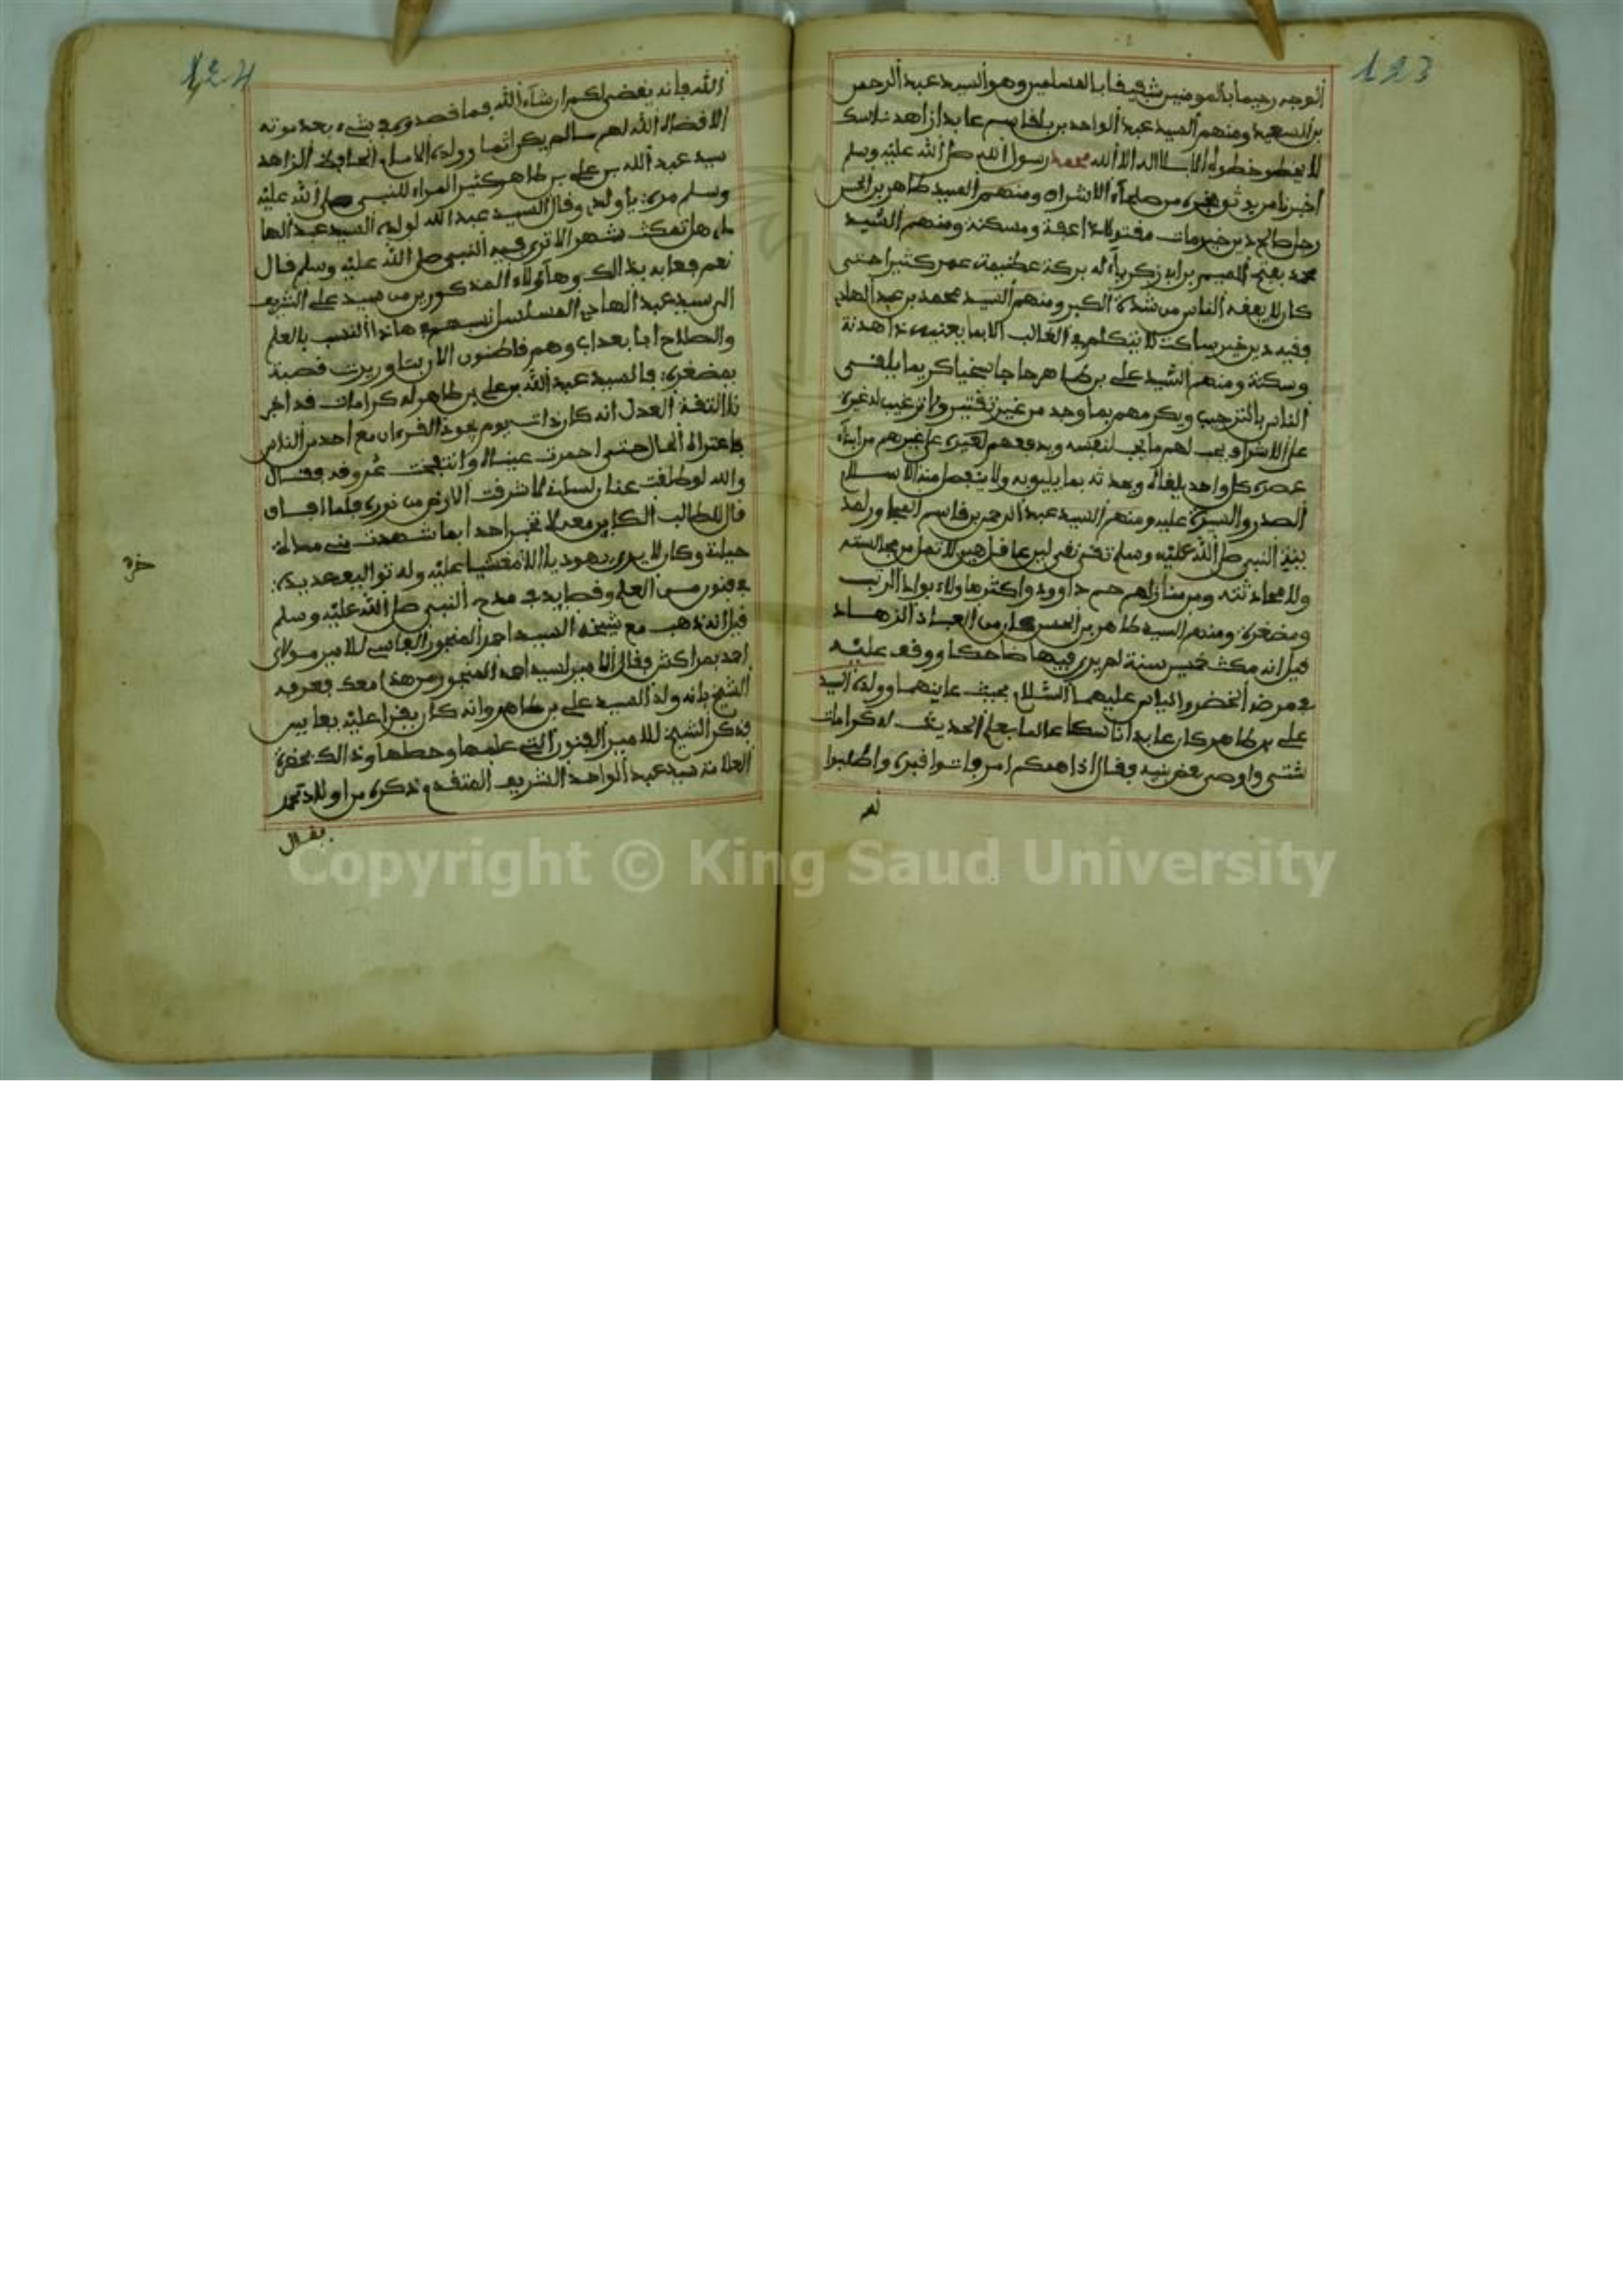 123
الوجه رحيما بالمومنين شفيفا بالمسلمين وهو السيد عبد الرحمن
بن السعيد ومنهم السيد عبد الواحد بن بلقاسم عابد زاهد ناسك
لا يخطو خطوة الا بلا اله الا الله محمد رسول الله صلى الله عليه وسلم
أخبرنا من يوثق بخبره من صلحاء الاشراف ومنهم السيد طاهر بن الحسن
رجل صالح دين خير مات مقتولا ذا عفة ومسكنة ومنهم السيد
محمد بفتح الميم بن ابي زكرياء له بركة عظيمة عمر كثيرا حتى
كان لا يعقه الناس من شدة الكبر ومنهم السيد محمد بن عبد الهادي
فقيه دين خير ساكت لا يتكلم في الغالب الا بما يعنيه ذا هدنة
وسكنة ومنهم السيد علي بن طاهر حاجا سخيا كريما يلقى
الناس بالترحيب ويكرمهم بما وجد من غير تقتير ولا ترغيب لغيره
على الاشراف يحب لهم ما يحب لنفسه ويدفعهم لغيره على غيرهم من ابناء
عصره كل واحد يلقاه ويحدثه بما يليق به ولا ينفصل منه الا بسلامة
الصدر والسيرة عليه ومنهم السيد عبد الرحمن بن قاسم المجاور لمد
ينة النبي صلى الله عليه وسلم تقي نقي لين عاقل هين لا تمل من مجالسته
ولا محادثته ومن منازلهم حم داوود واكثر هاولاء بواد الرتب
ومضغرة ومنهم السيد طاهر بن الحسن كان من العباد الزهاد
قيل انه مكث خمسين سنة لم ير فيها ضاحكا ووقف عليه
في مرض الخضر والياس عليهما السلام بحيث عاينهما وولده السيد
علي بن طاهر كان عابدا ناسكا عالما بعلم الحديث له كرامات
شتى واوصى بعض بنيه وقال اذا همكم امر فاتوا قبري واطلبوا
124
الله فإنه يقضى لكم ان شاء الله فما قصدوه في شيء بعد موته
الا قضاه الله لهم ما لم يكن اثما وولده الامام الحافظ الزاهد
سيد عبد الله بن علي بن طاهر كثير المراه للنبي صلى الله عليه
وسلم مرة يا ولدي وقال السيد عبد الله لولده السيد عبد الها
دي هل تمكث شهرا لا ترى فيه النبي صلى الله عليه وسلم قال
نعم فعابه بذالك وهاؤلاء المذكورين من سيد علي الشريف
الى سيد عبد الهادي المسلسل نسبهم في هاذا النسب بالعلم
والصلاح أبا بعد أب وهم قاطنون الان بتاوريرت قصبة
بمضغرة فالسيد عبد الله بن علي بن طاهر له كرامات قد اخبر
نا الثقة العدل انه كان ذات يوم يجود القرءان مع احد من الناس
فاعتراه الحال حتى احمرت عيناه وانتفخت عروقه فقال
والله لو طلقت عنان لسانه لاشرقت الارض من نوره فلما افاق
قال للطالب الكاين معه لا تخبر احدا بما شهدت مني مدة
حياتة وكان لا يرى يهوديا الا مغشيا عليه وله تواليف عديدة
في فنون من العلم وقصايد في مدح النبي صلى الله عليه وسلم
قيل انه ذهب مع شيخه السيد احمد المنجور الفاسي للامير مولاي
احمد بمراكش فقال الامير لسيد احمد المنجور من هذا معك فعرفه
الشيخ بانه ولد السيد علي بن طاهر وانه كان يقرا عليه بفاس
فذكر الشيخ للامير الفنون التي علمها وحصلها وذالك بحضرة
العلامة سيد عبد الواحد الشريف المتقدم ذكره من اولاد محمد
فقال
Copyright © King Saud University